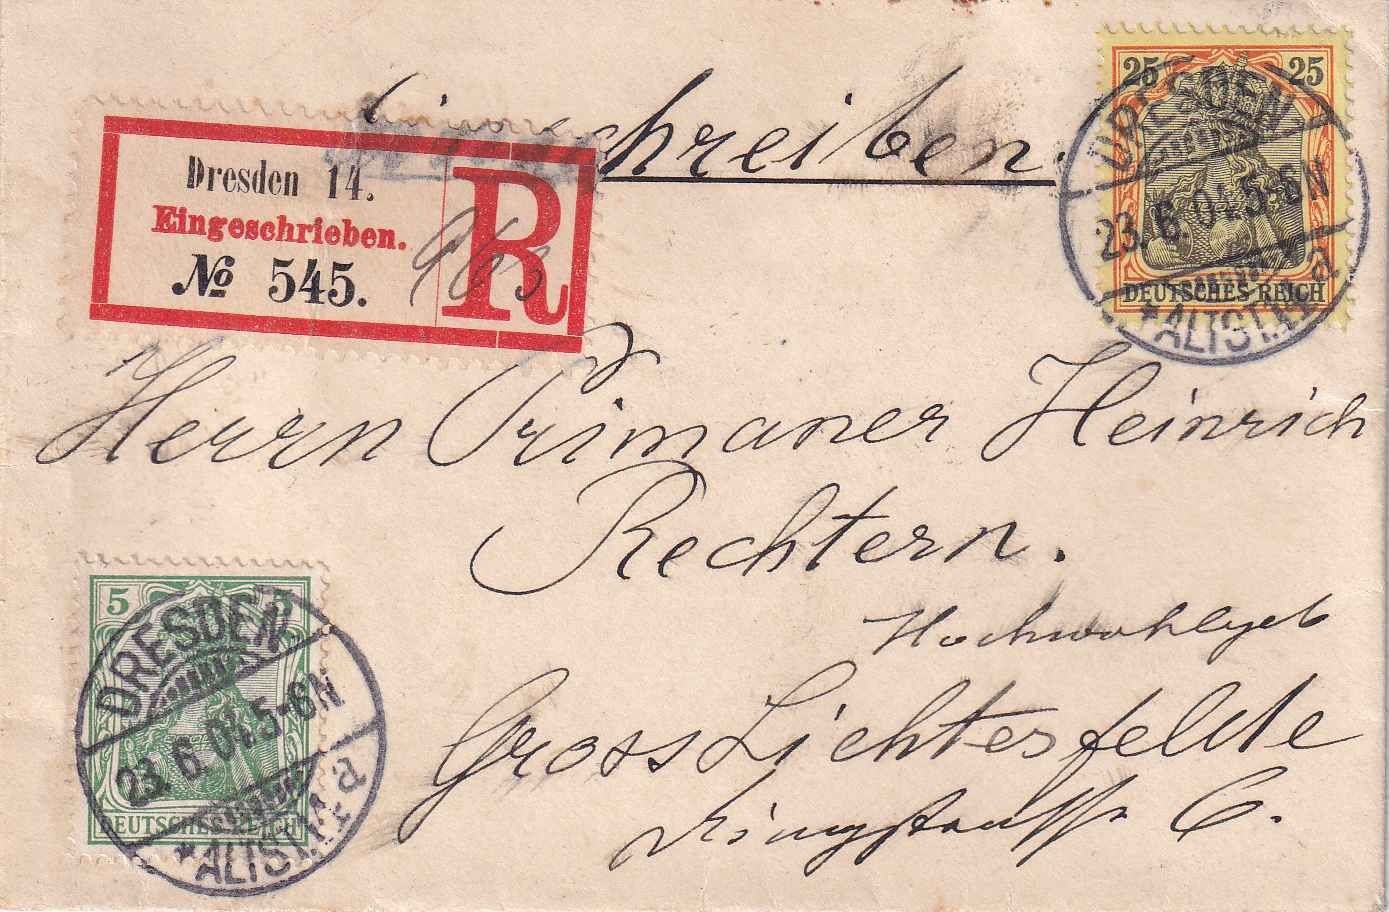 25 25
DEUTSCHES REICH
DRESDEN
23. 6. 01. 5-6N
* ALTST. 14 a
Einschreiben.
Dresden 14.
Eingeschrieben.
№ 545.
R
963
Herrn Primaner Heinrich
Rechtern.
Hochwohlgeb
Gross Lichterfelde
Ringstrasse 6.
5 5
DEUTSCHES REICH
DRESDEN
23. 6. 01. 5-6N
* ALTST. 14 a